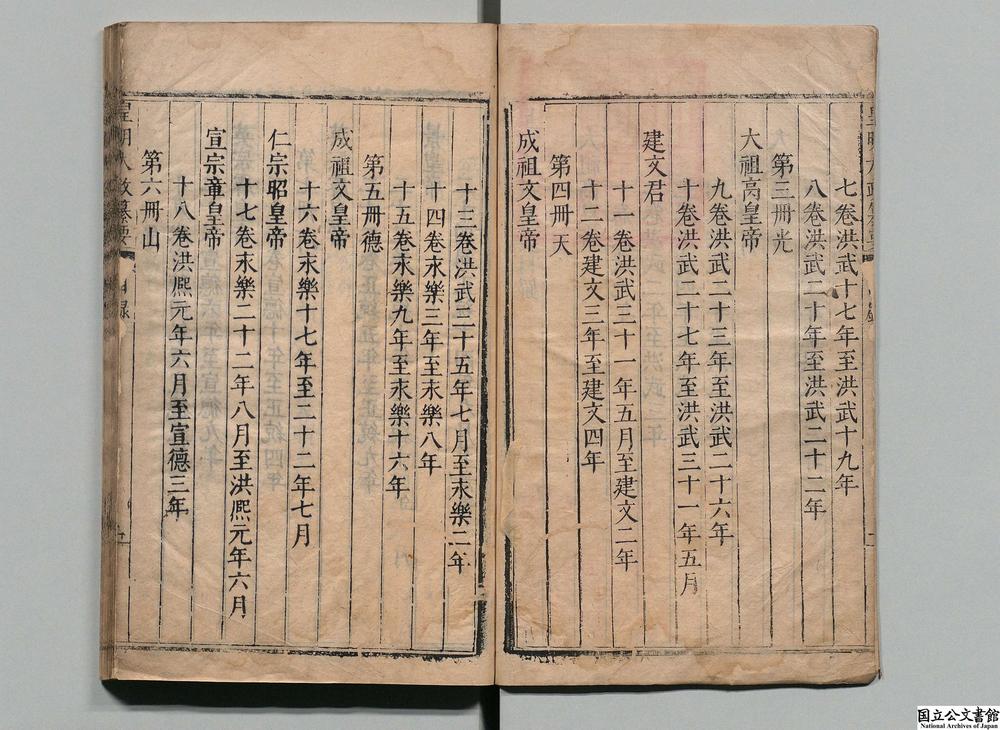 七卷洪武十七年至洪武十九年
八卷洪武二十年至洪武二十二年
第三冊光
大祖高皇帝
九卷洪武二十三年至洪武二十六年
十卷洪武二十七年至洪武三十一年五月
建文君
十一卷洪武三十一年五月至建文二年
十二卷建文三年至建文四年
第四冊天
成祖文皇帝
十三卷洪武三十五年七月至永樂二年
十四卷永樂三年至永樂八年
十五卷永樂九年至永樂十六年
第五冊德
成祖文皇帝
十六卷永樂十七年至二十二年七月
仁宗昭皇帝
十七卷永樂二十二年八月至洪熈元年六月
宣宗章皇帝
十八卷洪熈元年六月至宣德三年
第六冊山
皇明大政纂要
目録
国立公文書館
National Archives of Japan